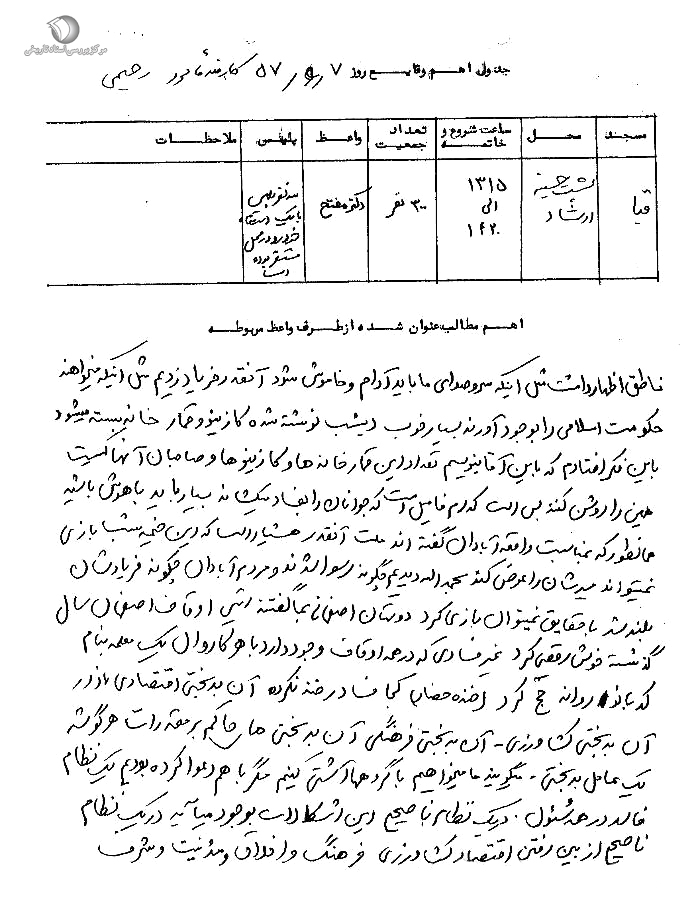 مرکز بررسی اسناد تاریخی
جدول اهم وقایع روز ۷ ر ۵۷ کارمند مامور رحیمی
مسجد محل ساعت شروع و خاتمه تعداد جمعیت واعظ پلیس ملاحظات
قبا پشت حسینیه ارشاد ۱۳۱۵ الی ۱۴۲۰ ۳۰۰ نفر دکتر مفتح
خودرو در محل
مستقر بوده
است
اهم مطالب عنوان شده از طرف واعظ مربوطه
ناطق اظهار داشت مثل اینکه سر و صدای ما باید آرام و خاموش شود آنقدر فریاد زدیم مثل اینکه میخواهند
حکومت اسلامی را بوجود آورند بسیار خوب دیشب نوشته شده کازینو و قمار خانه بسته میشود
باین فکر افتادم که باین آقا بنویسم تعداد این قمارخانه ها و کازینوها و صاحبان آنها کیست
همین را روشن کنند بس است کدام فامیل است که جوانان را بفساد میکشاند بسیار باید باهوش باشید
همانطور که بمناسبت واقعه آبادان گفته اند ملت آنقدر هشیار است که این خیمه شب بازی
نمیتواند مسیرشان را عوض کند بحمداله دیدیم چگونه رسوا شدند و مردم آبادان چگونه فریادشان
بلند شد با حقایق نمیتوان بازی کرد دوستان اصفهانی بما گفتند رئیس اوقاف اصفهان سال
گذشته خوش رقصی کرد غیر فسادی که در همه اوقاف وجود دارد با هر کاروان یک معلمه بنام
کدبانو روانه حج کرد (خنده حضار) کجا فساد رخنه نکرده آن بدبختی اقتصادی بازار
آن بدبختی کشاورزی - آن بدبختی فرهنگی آن بدبختی های حاکم بر مقدرات هر گوشه
یک عامل بدبختی - میگویند ما میخواهیم با گروهها آشتی کنیم مگر با هم دعوا کرده بودیم یک نظام
فاسد در همه شئون . در یک نظام ناصحیح این اشکالات بوجود میآید در یک نظام
ناصحیح از بین رفتن اقتصاد کشاورزی فرهنگ و اخلاق و مدنیت و شرف